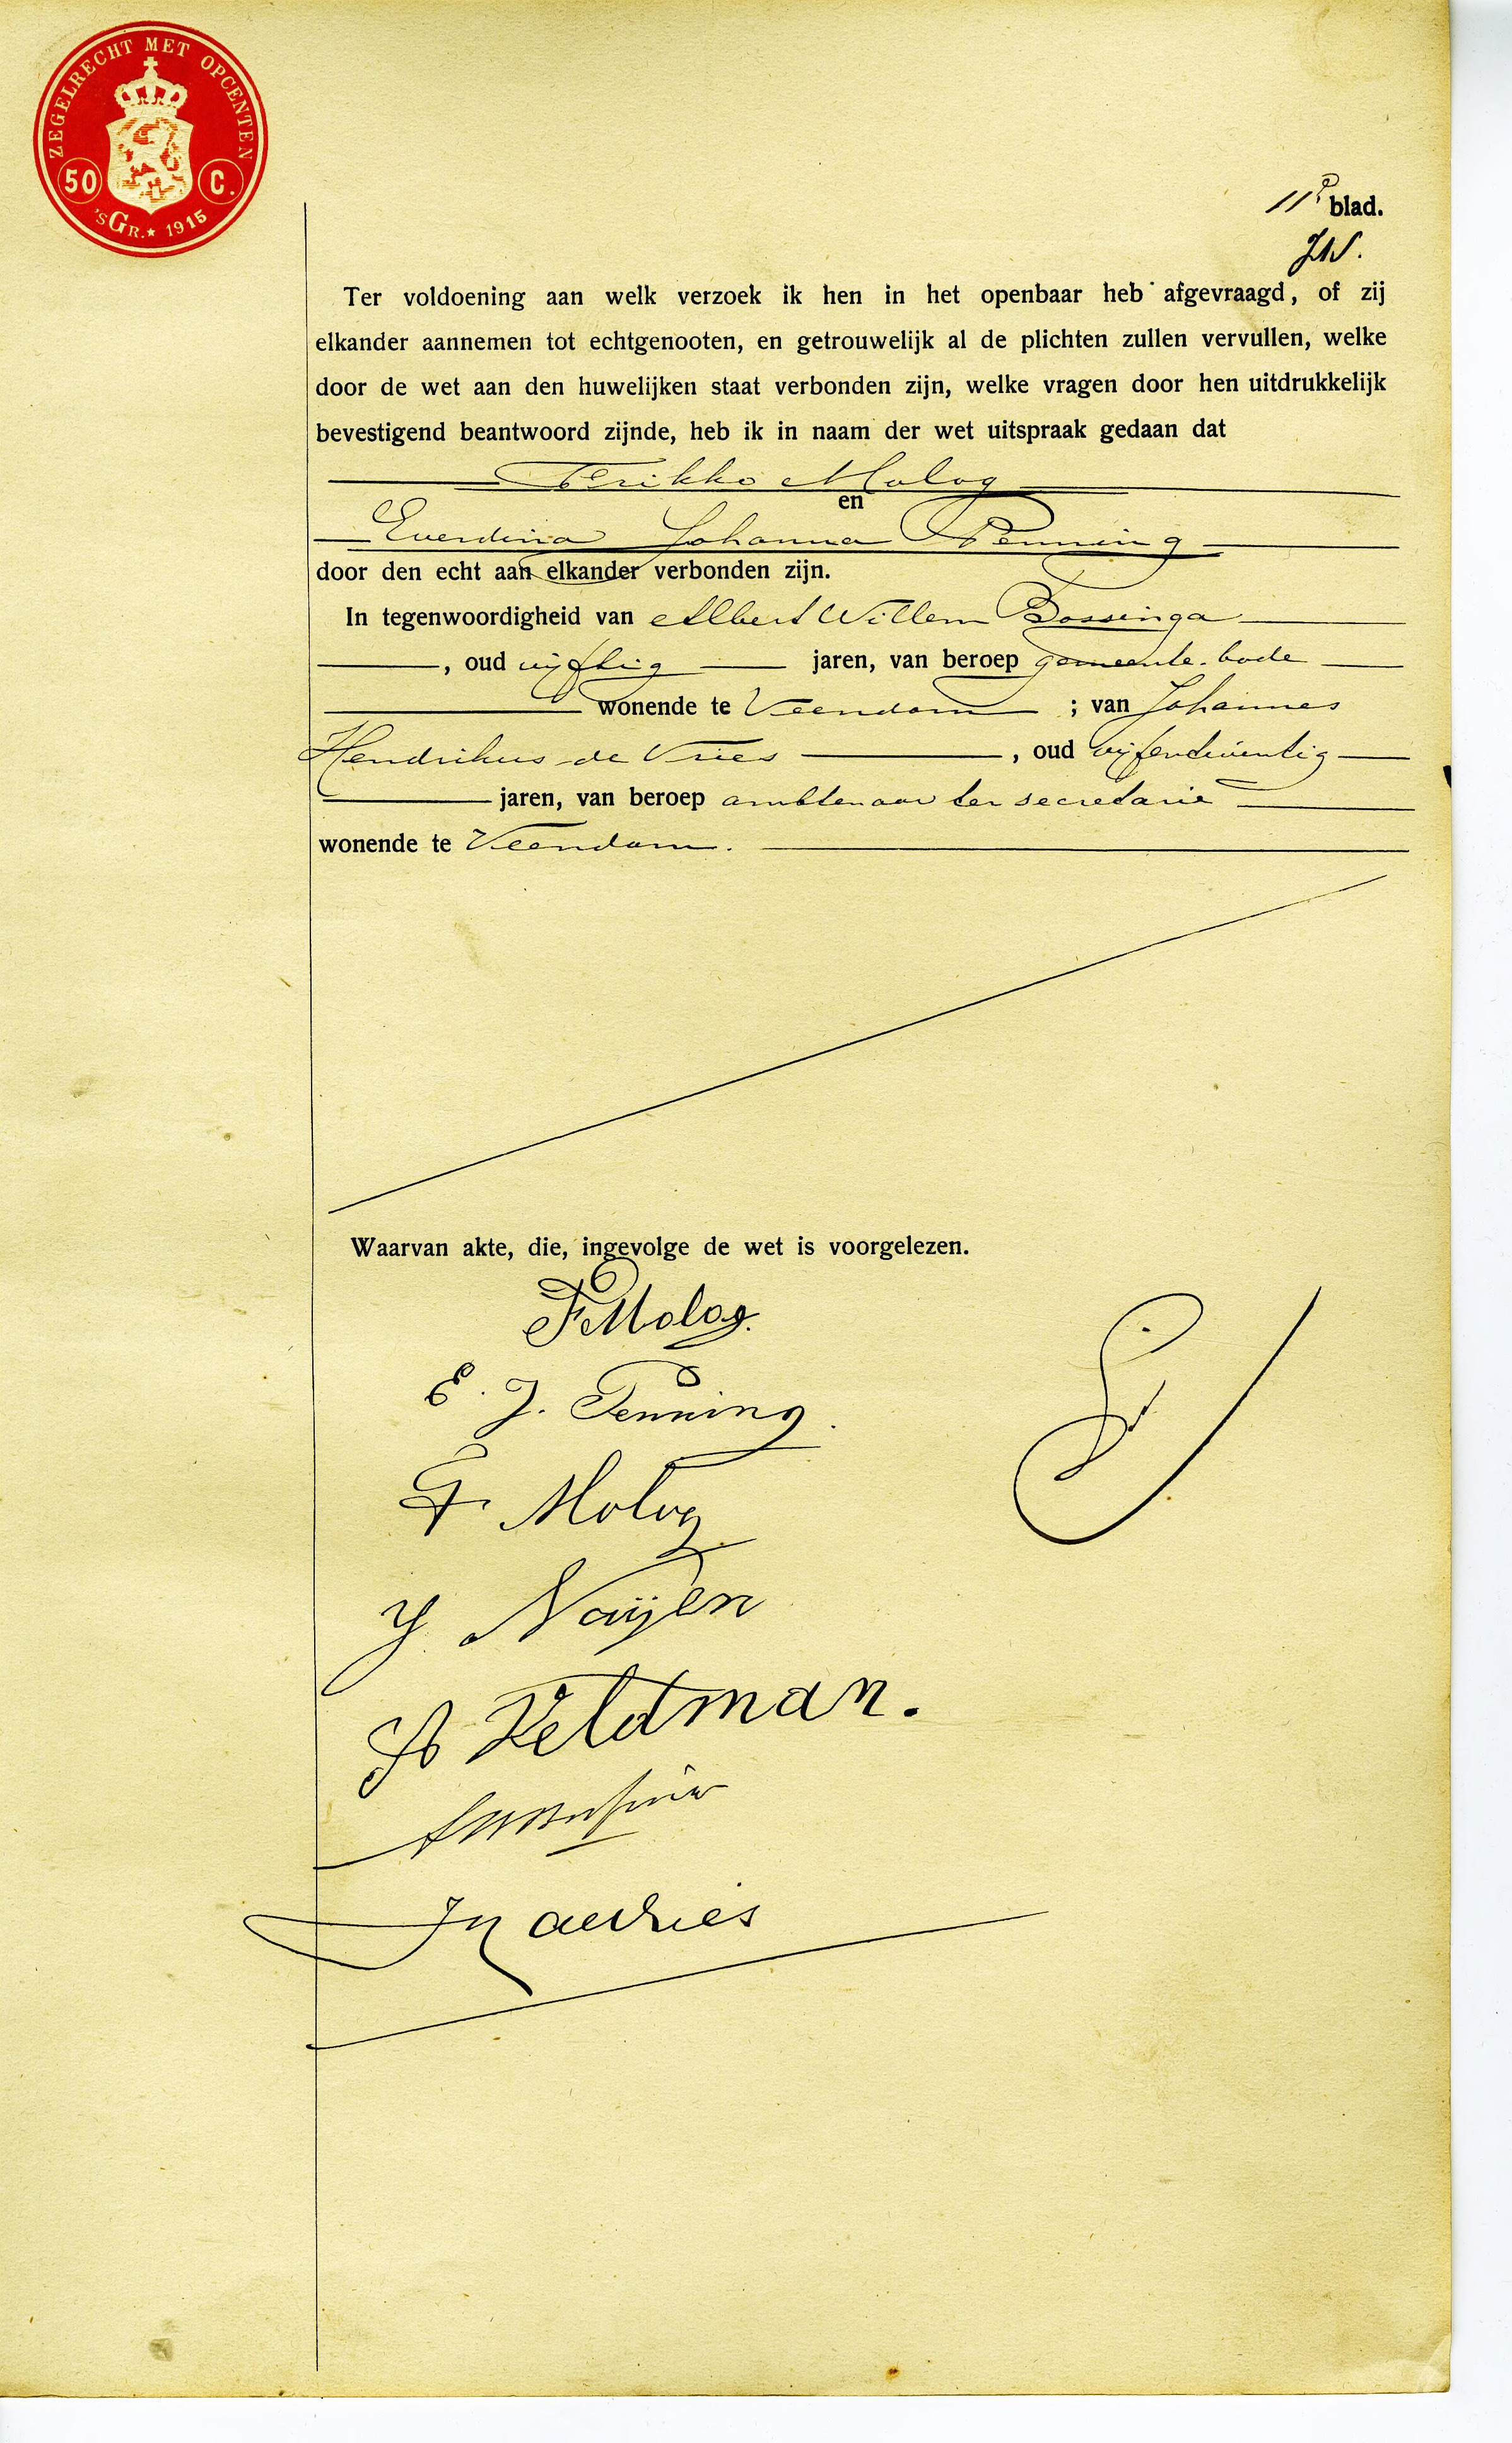 ZEGELRECHT MET OPCENTEN
50 C.
'sGR.★ 1915
11e blad.
JW.
Ter voldoening aan welk verzoek ik hen in het openbaar heb afgevraagd, of zij
elkander aannemen tot echtgenooten, en getrouwelijk al de plichten zullen vervullen, welke
door de wet aan den huwelijken staat verbonden zijn, welke vragen door hen uitdrukkelijk
bevestigend beantwoord zijnde, heb ik in naam der wet uitspraak gedaan dat
Frikko Molog
en
Everdina Johanna Penning
door den echt aan elkander verbonden zijn.
In tegenwoordigheid van Albert Willem Bossinga
, oud vijftig jaren, van beroep gemeente-bode
wonende te Veendam ; van Johannes
Hendrikus de Vries , oud vijfentwintig
jaren, van beroep ambtenaar ter secretarie
wonende te Veendam.
Waarvan akte, die, ingevolge de wet is voorgelezen.
F Molog.
E. J. Penning.
F Molog
J Naijen
Veldman.
de Vries